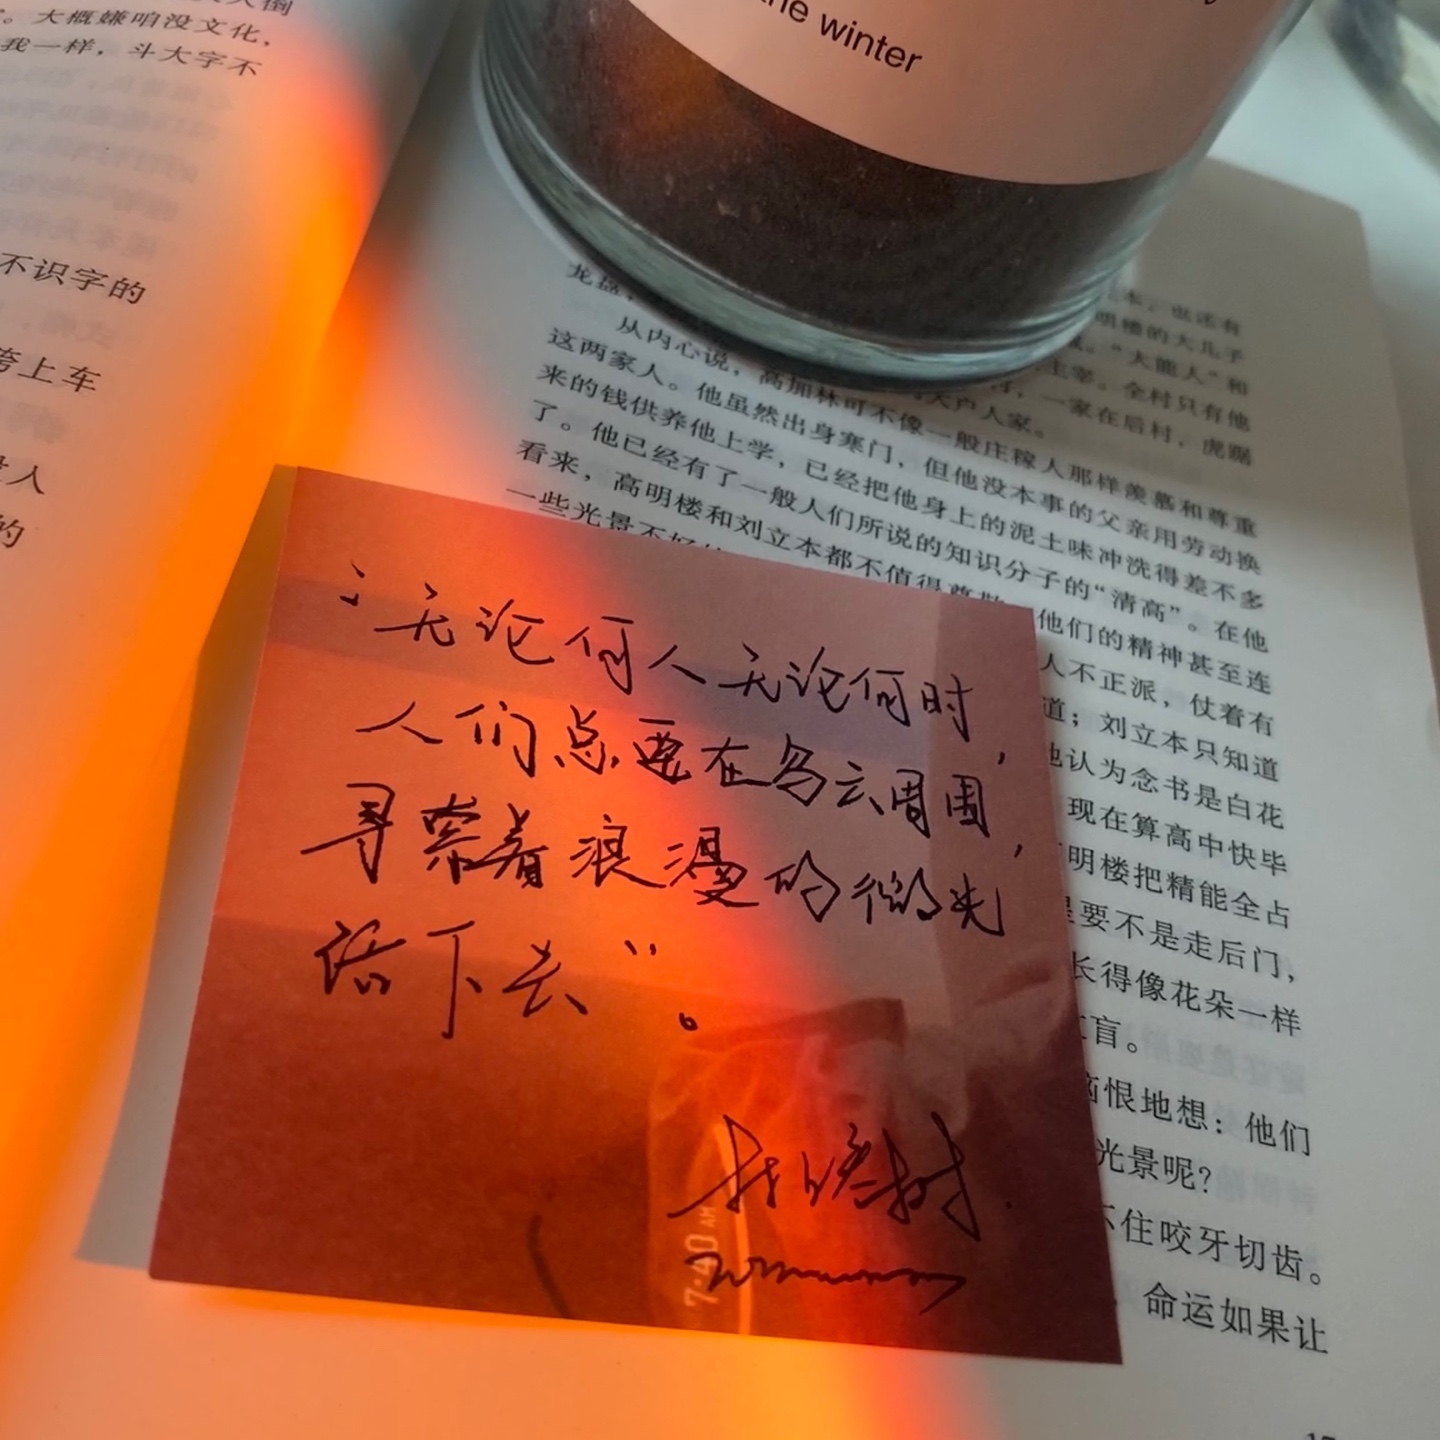 倒
。大概嫌咱没文化，
我一样，斗大字不
不识字的
上车
人
的
winter
本，也还有
明楼的大儿子
。“大能人”和
主宰。全村只有他
，一家在后村，虎踞
龙盘， 大户人家。
从内心说，高加林可不像一般庄稼人那样羡慕和尊重
这两家人。他虽然出身寒门，但他没本事的父亲用劳动换
来的钱供养他上学，已经把他身上的泥土味冲洗得差不多
了。他已经有了一般人们所说的知识分子的“清高”。在他
看来，高明楼和刘立本都不值得尊敬 他们的精神甚至连
一些光景不好 人不正派，仗着有
道；刘立本只知道
他认为念书是白花
现在算高中快毕
明楼把精能全占
是要不是走后门，
长得像花朵一样
盲。
恼恨地想：他们
光景呢？
不住咬牙切齿。
命运如果让
“无论何人无论何时，
人们总要在乌云周围，
寻索着浪漫的微光
活下去”。
7:40 AM